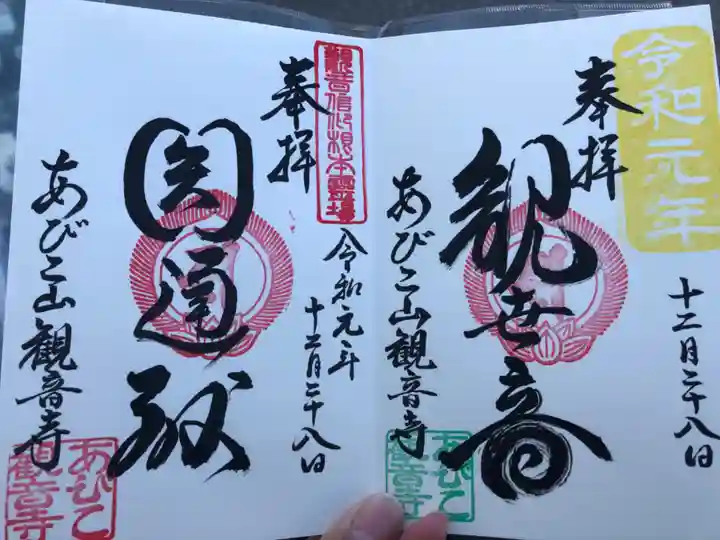 令和元年
奉拝
十二月二十八日
観世音
あびこ山観音寺
あびこ
観音寺
観音信仰根本霊場
奉拝
令和元年
十二月二十八日
円通殿
あびこ山観音寺
あびこ
観音寺